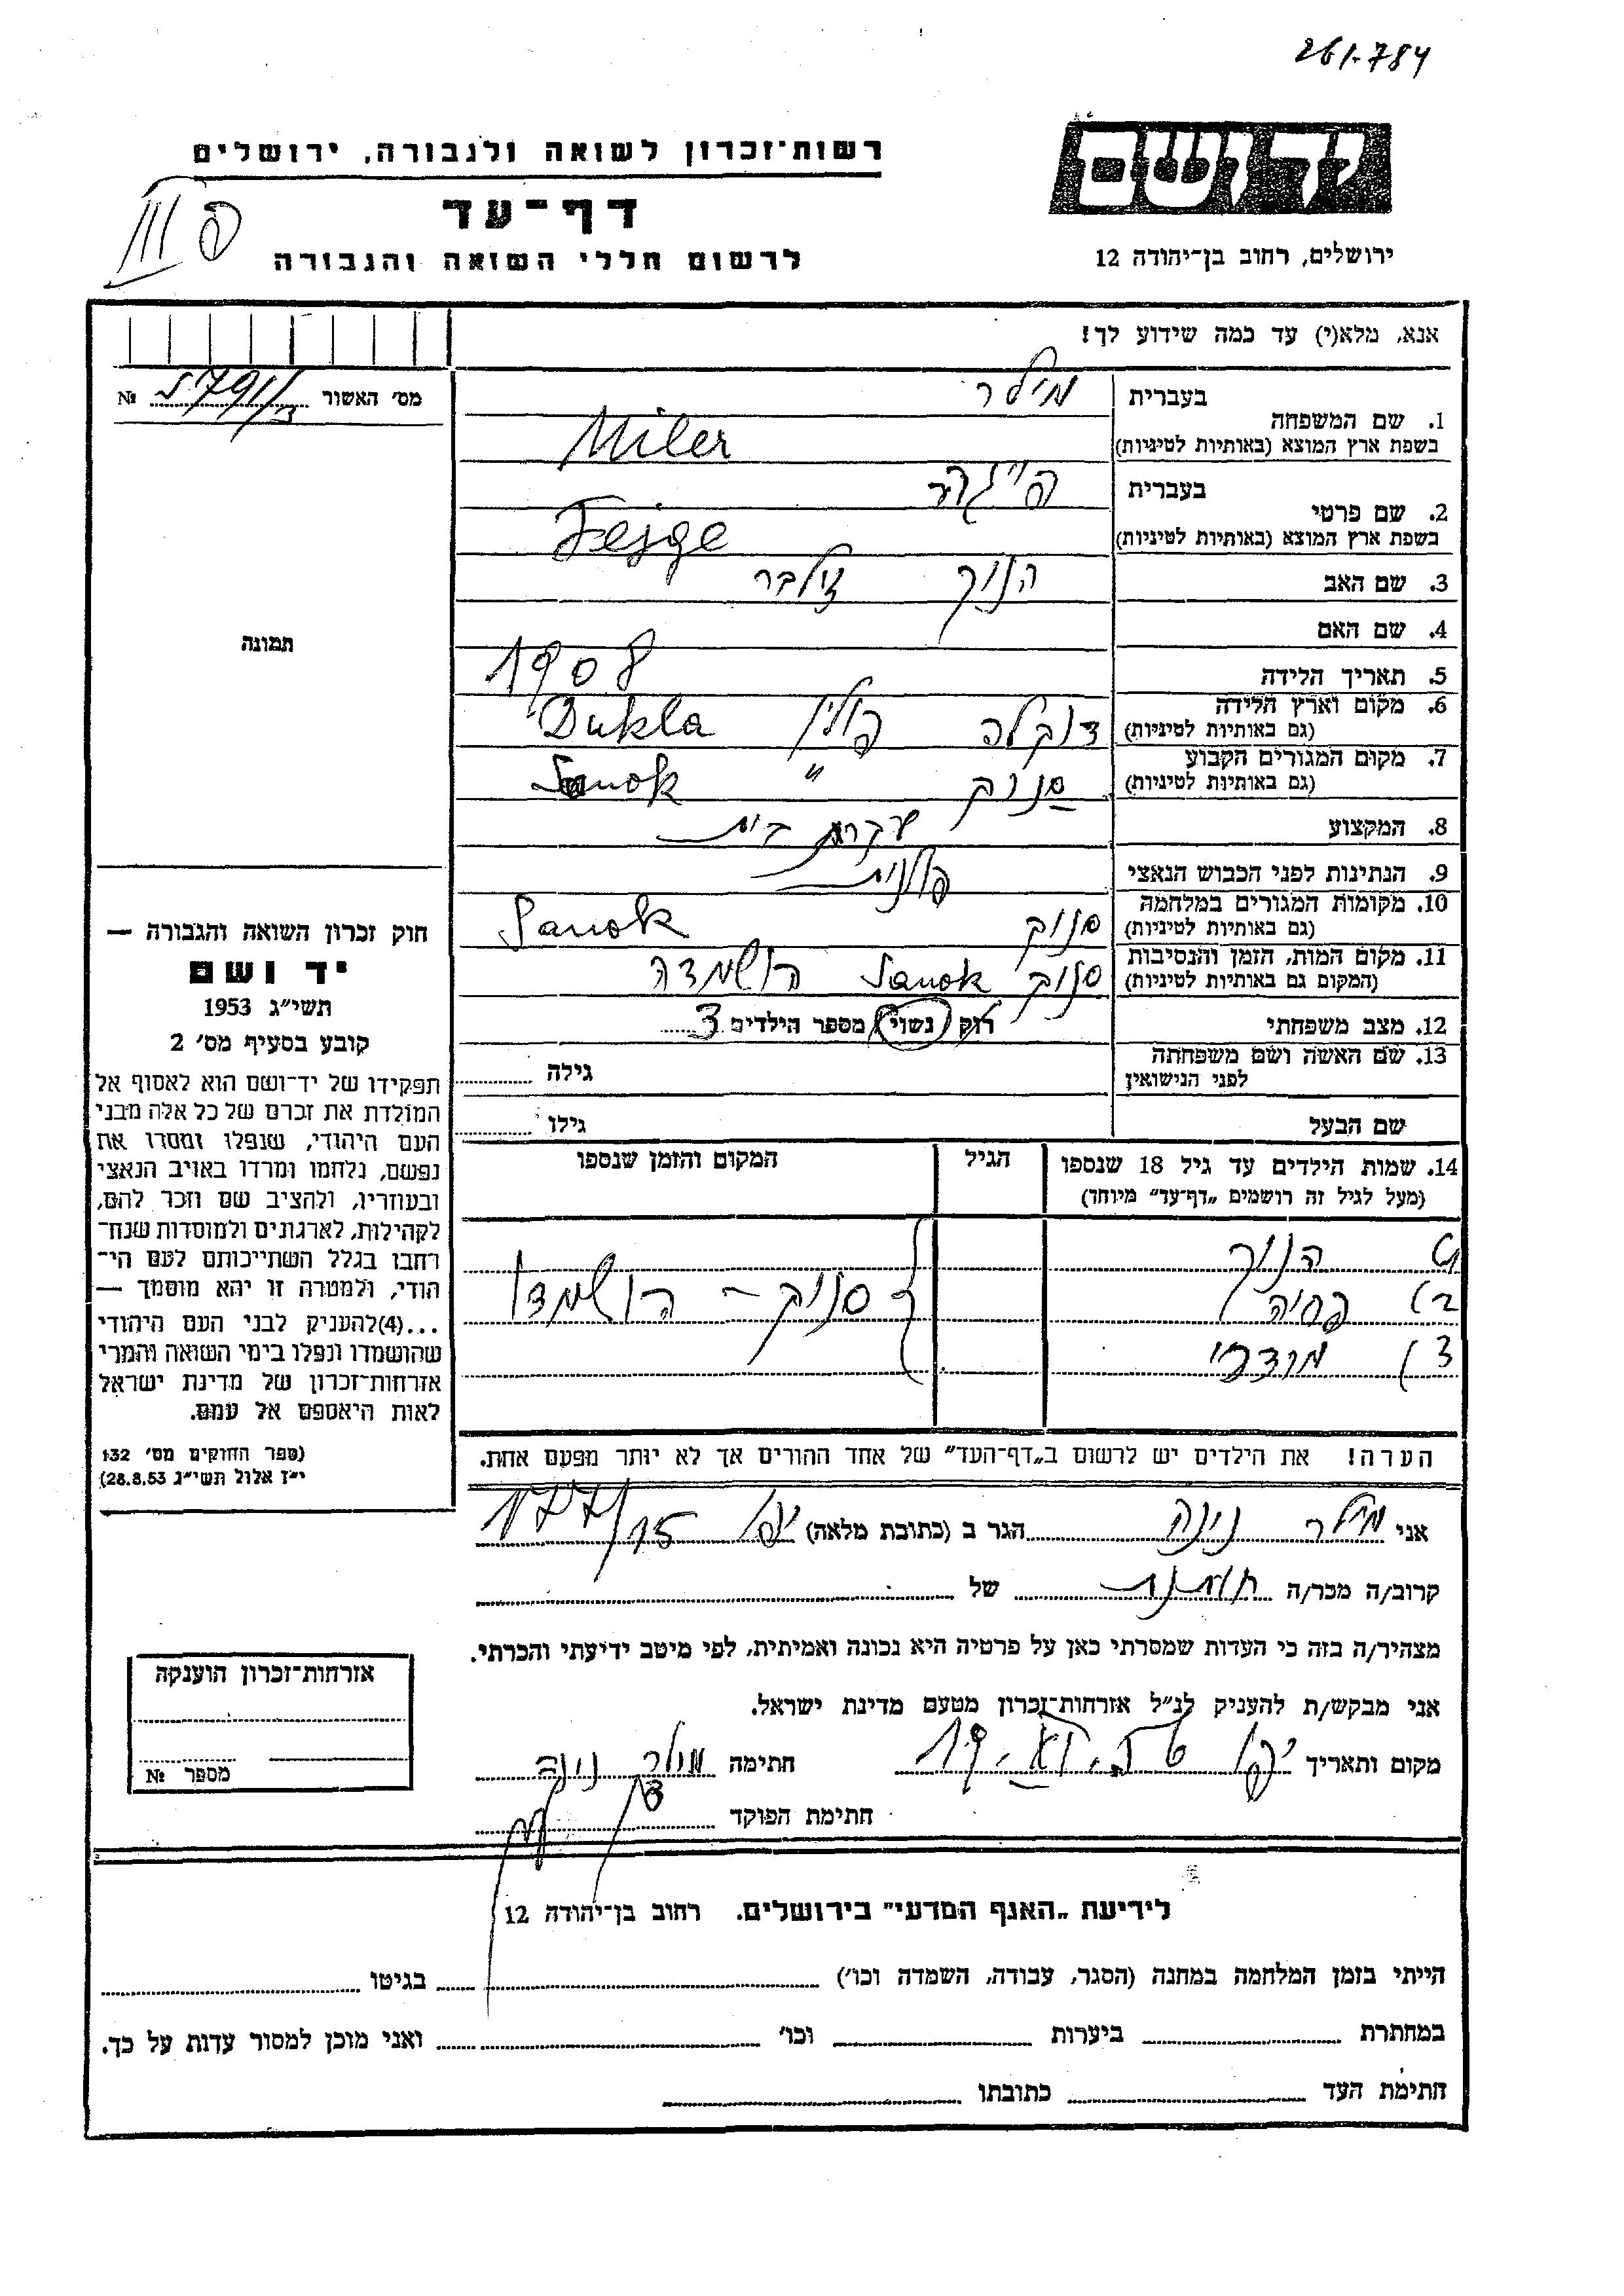 261-784
רשות־זכרון לשואה ולגבורה, ירושלים
דף־עד
לרשום חללי השואה והגבורה
יד ושם
ירושלים, רחוב בן־יהודה 12
פ III
אנא, מלא(י) עד כמה שידוע לך!
מס׳ האשור №
1. שם המשפחה
בעברית מילר
בשפת ארץ המוצא (באותיות לטיניות) Miler
2. שם פרטי
בעברית פייגה
בשפת ארץ המוצא (באותיות לטיניות) Fejge
3. שם האב הנוך זילבר
4. שם האם
5. תאריך הלידה 1908
6. מקום וארץ הלידה דוקלה פולין Dukla
(גם באותיות לטיניות)
7. מקום המגורים הקבוע סנוק " Sanok
(גם באותיות לטיניות)
8. המקצוע עקרת בית
9. הנתינות לפני הכבוש הנאצי פולנית
10. מקומות המגורים במלחמה סנוק Sanok
(גם באותיות לטיניות)
11. מקום המות, הזמן והנסיבות סנוק Sanok הושמדה
(המקום גם באותיות לטיניות)
12. מצב משפחתי רוק נשוי מספר הילדים 3
13. שם האשה ושם משפחתה גילה
לפני הנישואין
שם הבעל גילו
14. שמות הילדים עד גיל 18 שנספו הגיל המקום והזמן שנספו
(מעל לגיל זה רושמים „דף־עד" מיוחד)
1) הנוך
2) פחיה סנוק – הושמדו
3) מוצדכי
הערה! את הילדים יש לרשום ב„דף־העד" של אחד ההורים אך לא יותר מפעם אחת.
תמונה
חוק זכרון השואה והגבורה —
יד ושם
תשי״ג 1953
קובע בסעיף מס׳ 2
תפקידו של יד־ושם הוא לאסוף אל
המולדת את זכרם של כל אלה מבני
העם היהודי, שנפלו ומסרו את
נפשם, נלחמו ומרדו באויב הנאצי
ובעוזריו, ולהציב שם וזכר להם,
לקהילות, לארגונים ולמוסדות שנח־
רחבו בגלל השתייכותם לעם הי־
הודי, ולמטרה זו יהא מוסמך —
...(4)להעניק לבני העם היהודי
שהושמדו ונפלו בימי השואה והמרי
אזרחות־זכרון של מדינת ישראל
לאות היאספם אל עמם.
(ספר החוקים מס׳ 132
י״ז אלול תשי״ג 28.8.53)
אני מילר נינה הגר ב (כתובת מלאה) יפו 177/15
קרוב/ה מכר/ה של
מצהיר/ה בזה כי העדות שמסרתי כאן על פרטיה היא נכונה ואמיתית, לפי מיטב ידיעתי והכרתי.
אני מבקש/ת להעניק לנ״ל אזרחות־זכרון מטעם מדינת ישראל.
מקום ותאריך יפו חתימה מילר נינה
חתימת הפוקד
אזרחות־זכרון הוענקה
מספר №
לידיעת „האגף המדעי" בירושלים. רחוב בן־יהודה 12
הייתי בזמן המלחמה במחנה (הסגר, עבודה, השמדה וכו׳) בגיטו
במחתרת ביערות וכו׳ ואני מוכן למסור עדות על כך.
חתימת העד כתובתו